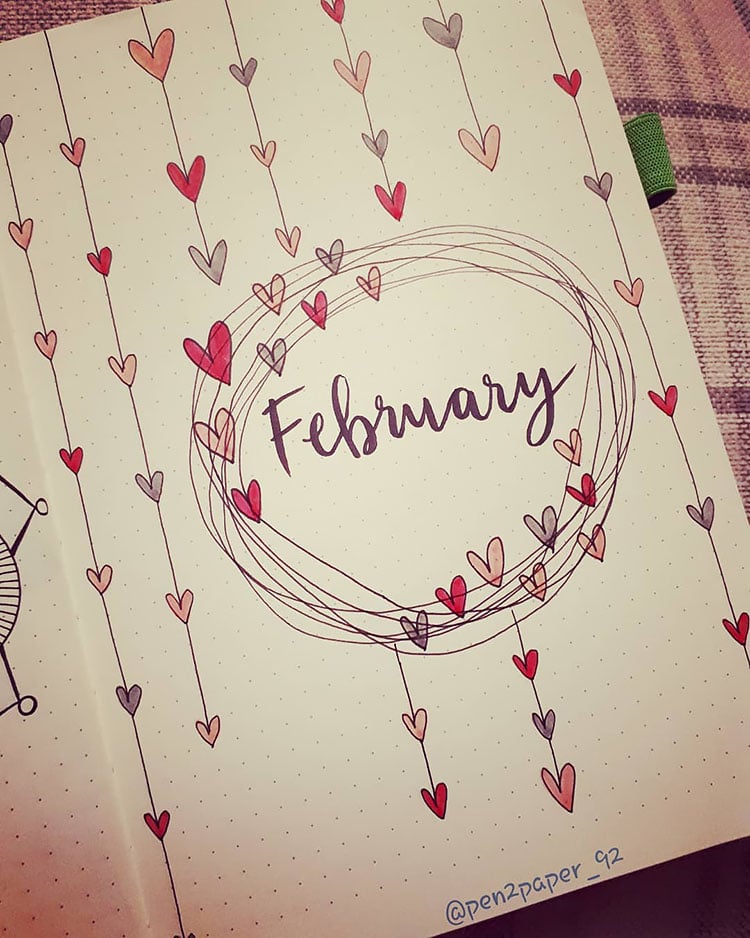 February
@pen2paper_92